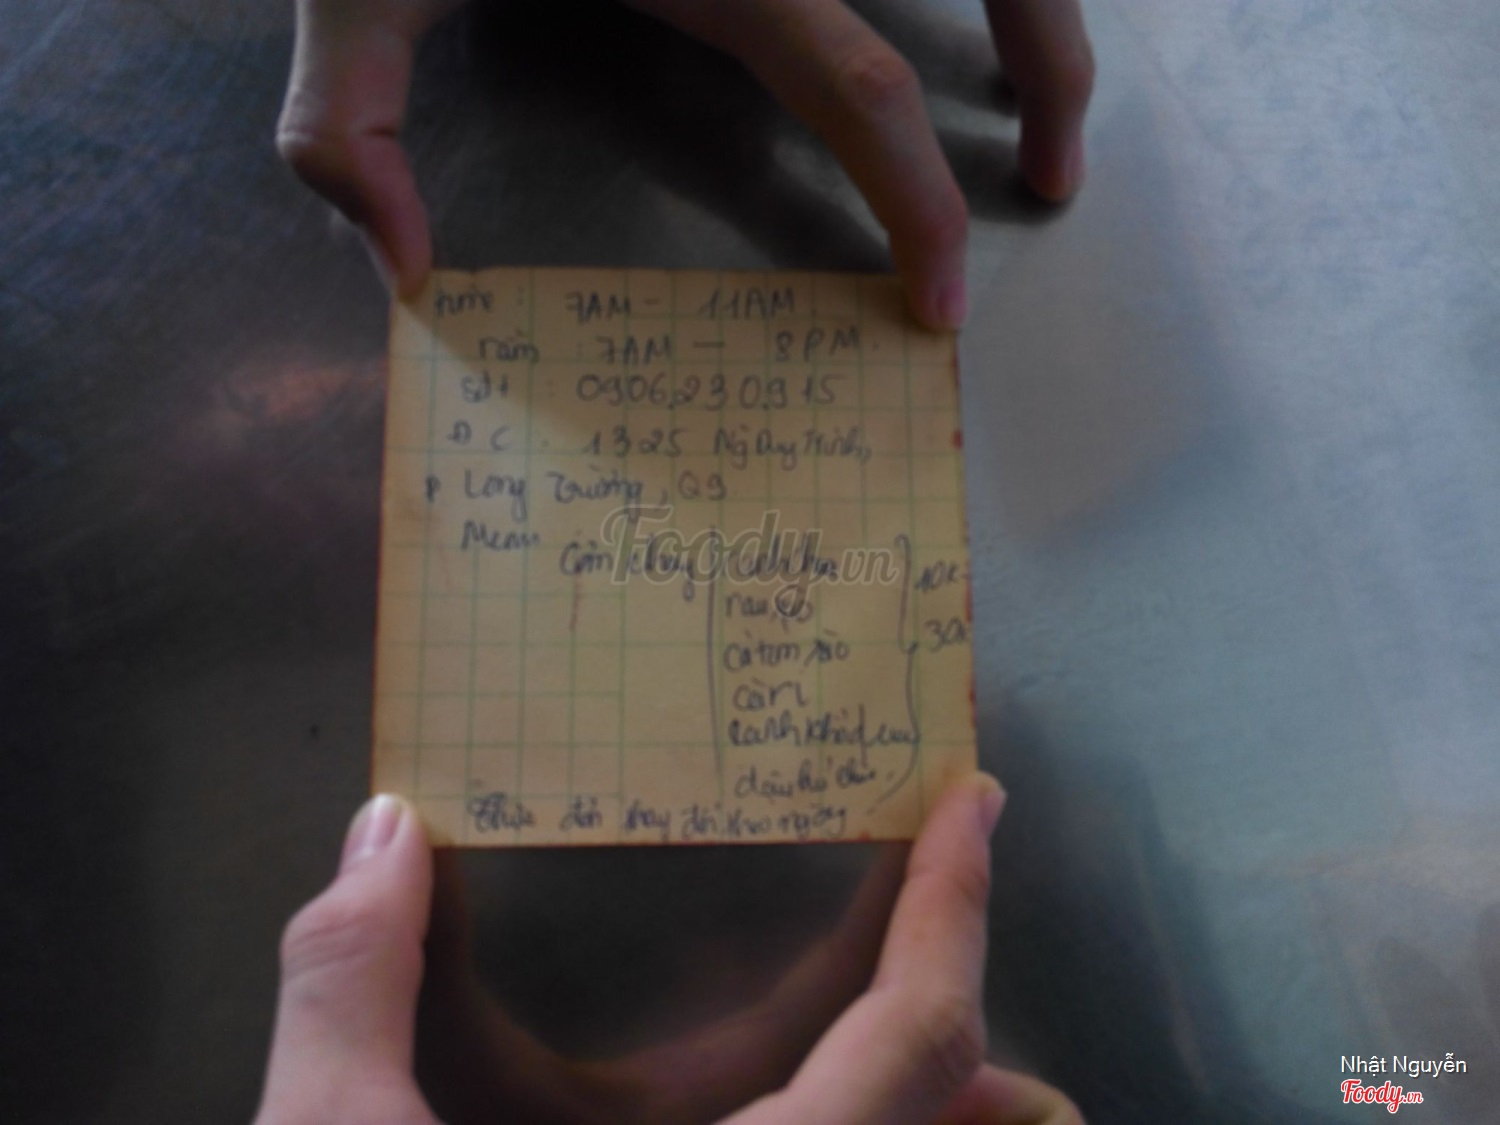 time : 7AM - 11AM
rằm : 7AM - 8PM.
sđt : 0906.230915
ĐC : 1325 Ng Duy Trinh,
P Long Trường, Q9
Menu
Cơm chay canh
rau,
10k-
30k
cà tím xào
càri
canh khổ qua
đậu hủ
Thực đơn thay đổi theo ngày
Foody.vn
Nhật Nguyễn
Foody.vn